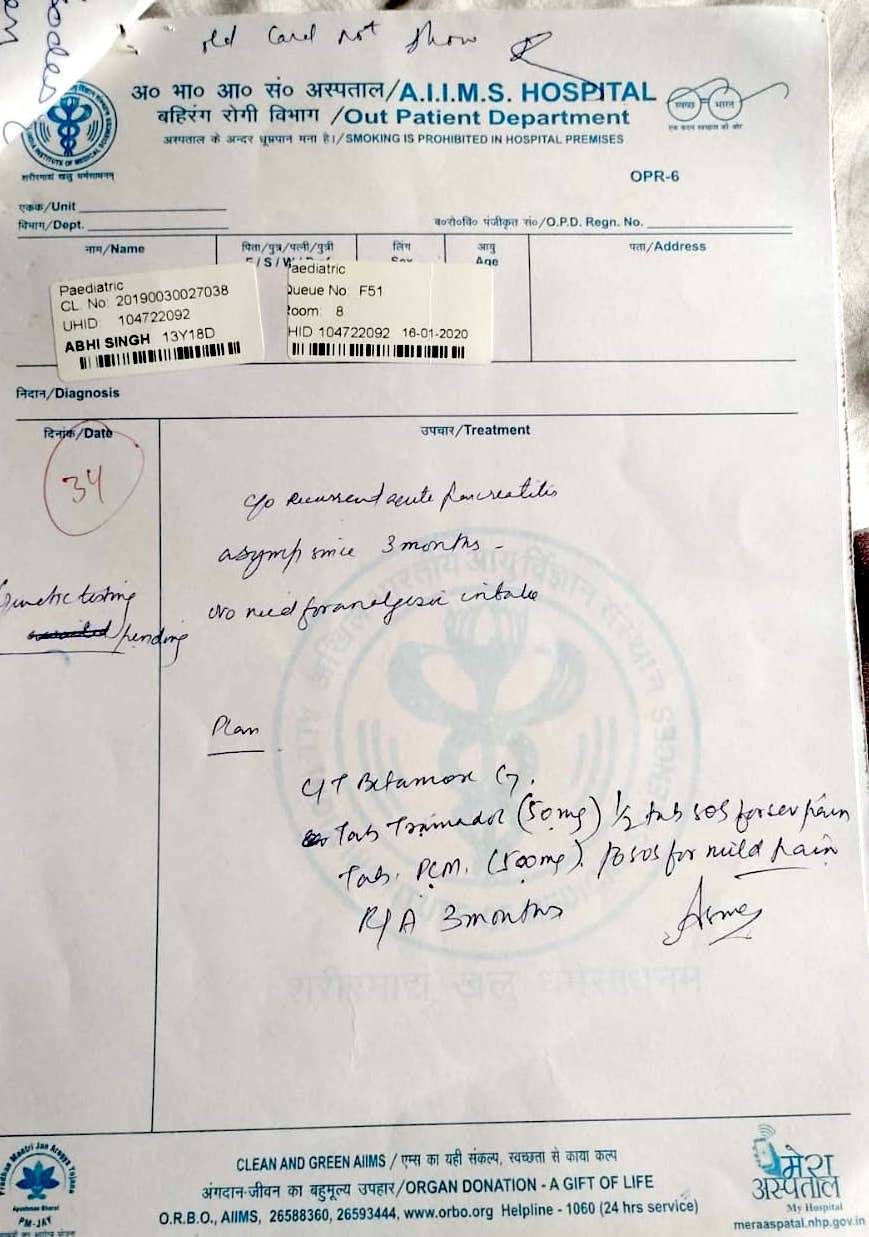 old Card not show
अ० भा० आ० सं० अस्पताल/A.I.I.M.S. HOSPITAL
बहिरंग रोगी विभाग /Out Patient Department
अस्पताल के अन्दर धूम्रपान मना है।/SMOKING IS PROHIBITED IN HOSPITAL PREMISES
स्वच्छ भारत
एक कदम स्वच्छता की ओर
शरीरमाद्यं खलु धर्मसाधनम्
OPR-6
एकक/Unit
विभाग/Dept.
ब०रो०वि० पंजीकृत सं०/O.P.D. Regn. No.
नाम/Name
पिता/पुत्र/पत्नी/पुत्री
F / S / W
लिंग
Sex
आयु
Age
पता/Address
Paediatric
CL No: 20190030027038
UHID: 104722092
ABHI SINGH 13Y18D
aediatric
Queue No: F51
Room: 8
HID 104722092 16-01-2020
निदान/Diagnosis
दिनांक/Date
उपचार/Treatment
34
c/o recurrent acute pancreatitis
asymp since 3 months -
No need for analgesic intake
Genetic testing
pending
Plan
C/T Betamore G.
Tab Tramadol (50mg) 1/2 tab sos for sev pain
Tab. PCM. (500mg). PO sos for mild pain
R/A 3 months
शरीरमाद्यं खलु धर्मसाधनम्
CLEAN AND GREEN AIIMS / एम्स का यही संकल्प, स्वच्छता से काया कल्प
अंगदान-जीवन का बहुमूल्य उपहार/ORGAN DONATION - A GIFT OF LIFE
O.R.B.O., AIIMS, 26588360, 26593444, www.orbo.org Helpline - 1060 (24 hrs service)
Pradhan Mantri Jan Arogya Yojana
Ayushman Bharat
PM-JAY
मेरा
अस्पताल
My Hospital
meraaspatal.nhp.gov.in